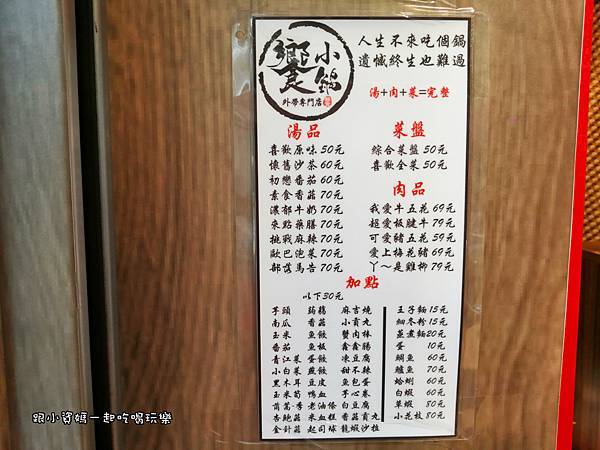 饗
小鍋
外帶專門店
人生不來吃個鍋
遺憾終生也難過
湯+肉+菜=完整
湯品
喜歡原味 50元
懷舊沙茶 60元
初戀番茄 60元
素食香菇 70元
濃郁牛奶 70元
來點藥膳 70元
挑戰麻辣 70元
歐巴泡菜 70元
部落馬告 70元
菜盤
綜合菜盤 50元
喜歡全菜 50元
肉品
我愛牛五花 69元
超愛板腱牛 79元
可愛豬五花 59元
愛上梅花豬 69元
丫~是雞柳 79元
加點
以下30元
芋頭 蒟蒻 麻吉燒
南瓜 香菇 小貢丸
玉米 魚餃 蟹肉棒
番茄 魚板 鑫鑫腸
青江菜 蛋餃 凍豆腐
小白菜 燕餃 甜不辣
黑木耳 豆皮 魚包蛋
玉米筍 鴨血 芋心卷
茼萵 李老油條 白豆腐
杏鮑菇 米血糕 香菇貢丸
金針菇 起司球 龍蝦沙拉
王子麵 15元
細冬粉 15元
蒸煮麵 20元
蛋 10元
鯛魚 60元
鱸魚 70元
蛤蜊 60元
白蝦 60元
草蝦 80元
小花枝 80元
跟小資媽一起吃喝玩樂